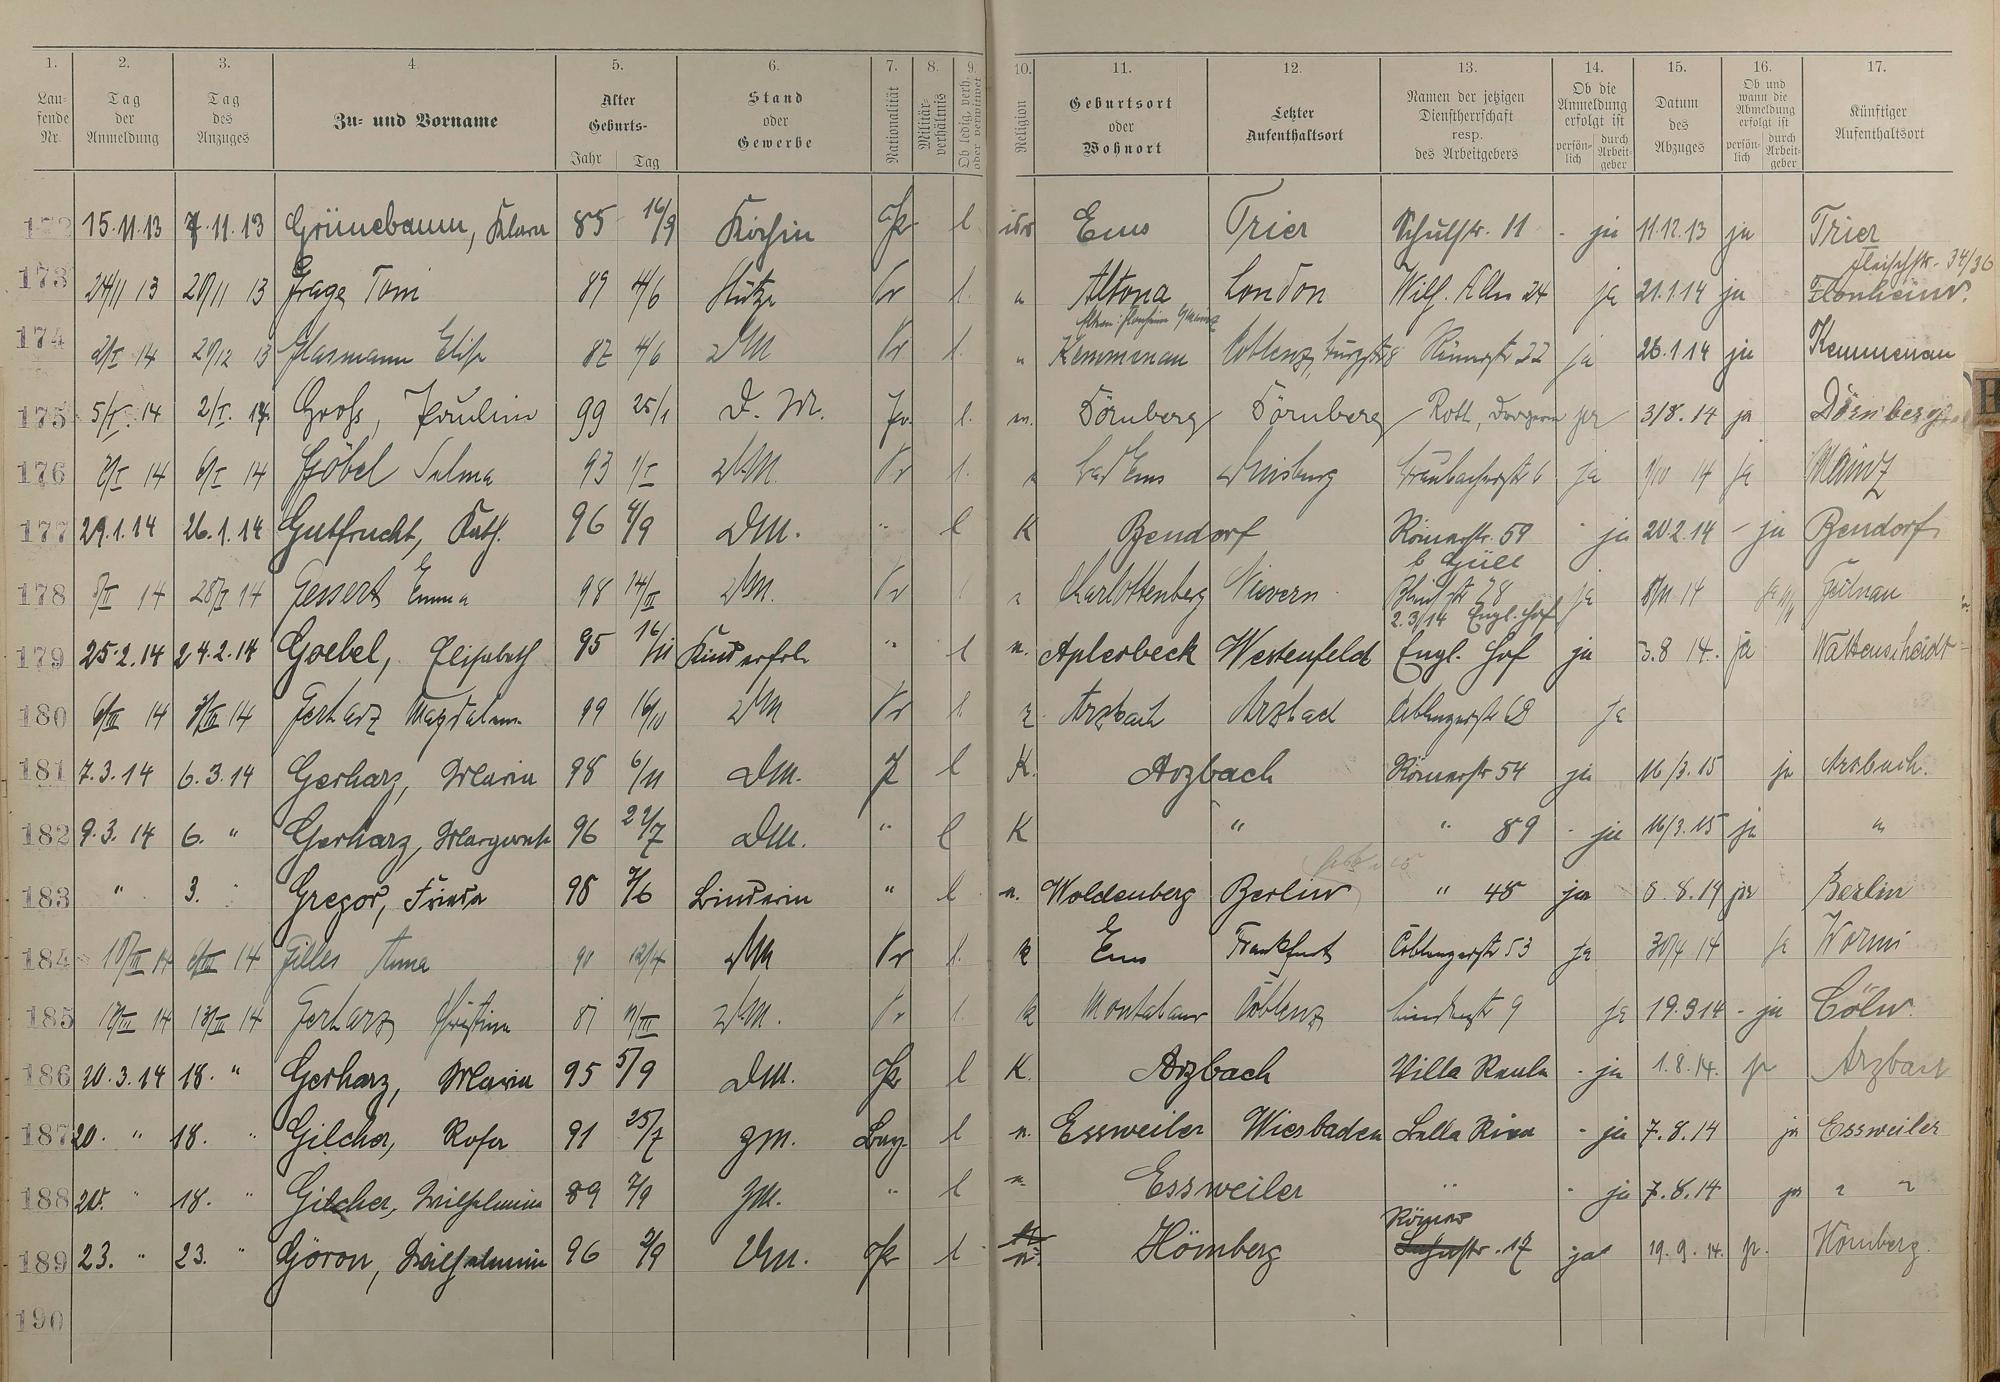 1. 2. 3. 4. 5. 6. 7. 8. 9. 10. 11. 12. 13. 14. 15. 16. 17.
Lau-fende Nr. Tag der Anmeldung Tag des Anzuges Zu- und Vorname Alter Geburts- Jahr Tag Stand oder Gewerbe Nationalität Militär-verhältnis Ob ledig, verh. oder verwitwet Religion Geburtsort oder Wohnort Letzter Aufenthaltsort Namen der jetzigen Dienstherrschaft resp. des Arbeitgebers Ob die Anmeldung erfolgt ist persön-lich durch Arbeit-geber Datum des Abzuges Ob und wann die Abmeldung erfolgt ist persön-lich durch Arbeit-geber Künftiger Aufenthaltsort
172 15.11.13 7.11.13 Grünebaum, Klara 85 16/9 Köchin Pr l isr Ems Trier Schulstr. 11 - ja 11.12.13 ja Trier
Fleischstr. 34/36
173 24/11 13 20/11 13 Frage Toni 89 4/6 Stütze Pr l. " Altona London Wilh. Allee 24 ja 21.1.14 ja Flonheim.
174 2/I 14 29/12 13 Glasmann Elise 82 4/6 DM Pr l. " Kemmenau Coblenz, Burgstr 8 Römerstr 22 ja 26.1.14 ja Kemmenau
175 5/I. 14 2/I. 14. Groß, Pauline 99 25/1 D. M. Pr. l. ev. Dörnberg Dörnberg Roth, ja 3/8. 14 ja Dörnberg
176 7/I 14 6/I 14 Göbel Selma 93 1/I DM. Pr l. Bad Ems Duisburg Braubacherstr 6 ja 1/IV 14 ja Mainz
177 29.1.14 26.1.14 Gutfrucht, Kath. 96 4/9 DM. " l K Bendorf Römerstr. 59 - ja 20.2.14 - ja Bendorf
178 5/II 14 28/I 14 Gessert Emma 98 14/III DM. Pr l Charlottenberg Nievern 28 ja 14 ja Geilnau
2.3/14 Engl. Hof
179 25.2.14 24.2.14 Goebel, Elisabeth 95 16/11 Kinderfrl. " l ev. Aplerbeck Westenfeld Engl. Hof ja 3.8 14. ja Wattenscheidt
180 6/III 14 3/III 14 Gerharz Magdalena 99 16/10 DM Pr l. Arzbach Arzbach Coblenzerstr 68 ja
181 7.3.14 6.3.14 Gerharz, Maria 98 6/11 DM. P l K. Arzbach Römerstr 54 ja 16/3.15 ja Arzbach.
182 9.3.14 6. " Gerharz, Margareth 96 22/7 DM. " l K " " 89 - ja 16/3.15 ja "
183 " 3. " Gregor, Frieda 98 7/6 Binderin " l ev. Woldenberg Berlin " 48 ja 5.8.14 ja Berlin
184 10/III 14 6/III 14 Gilles Anna 91 12/4 DM Pr l. K Ems Frankfurt Coblenzerstr 53 ja 30/4 14 ja Worms
185 17/III 14 13/III 14 Gerharz Christina 81 11/III DM. Pr l. K Montabaur Coblenz Lindenstr 9 ja 19.9.14 - ja Cöln.
186 20.3.14 18. " Gerharz, Maria 95 5/9 DM. Pr l K. Arzbach Villa Paula - ja 1.8.14. ja Arzbach
187 20. " 18. " Gilcher, Rosa 91 25/7 ZM. Bay. l ev. Essweiler Wiesbaden Bella Riva - ja 7.8.14 ja Essweiler
188 20. " 18. " Gilcher, Wilhelmine 89 7/9 ZM. " l " Essweiler " - ja 7.8.14 ja " "
189 23. " 23. " Göron, Wilhelmine 96 2/9 DM. Pr l ev. Hömberg Römer 17 ja 19.9.14. ja. Hömberg.
190